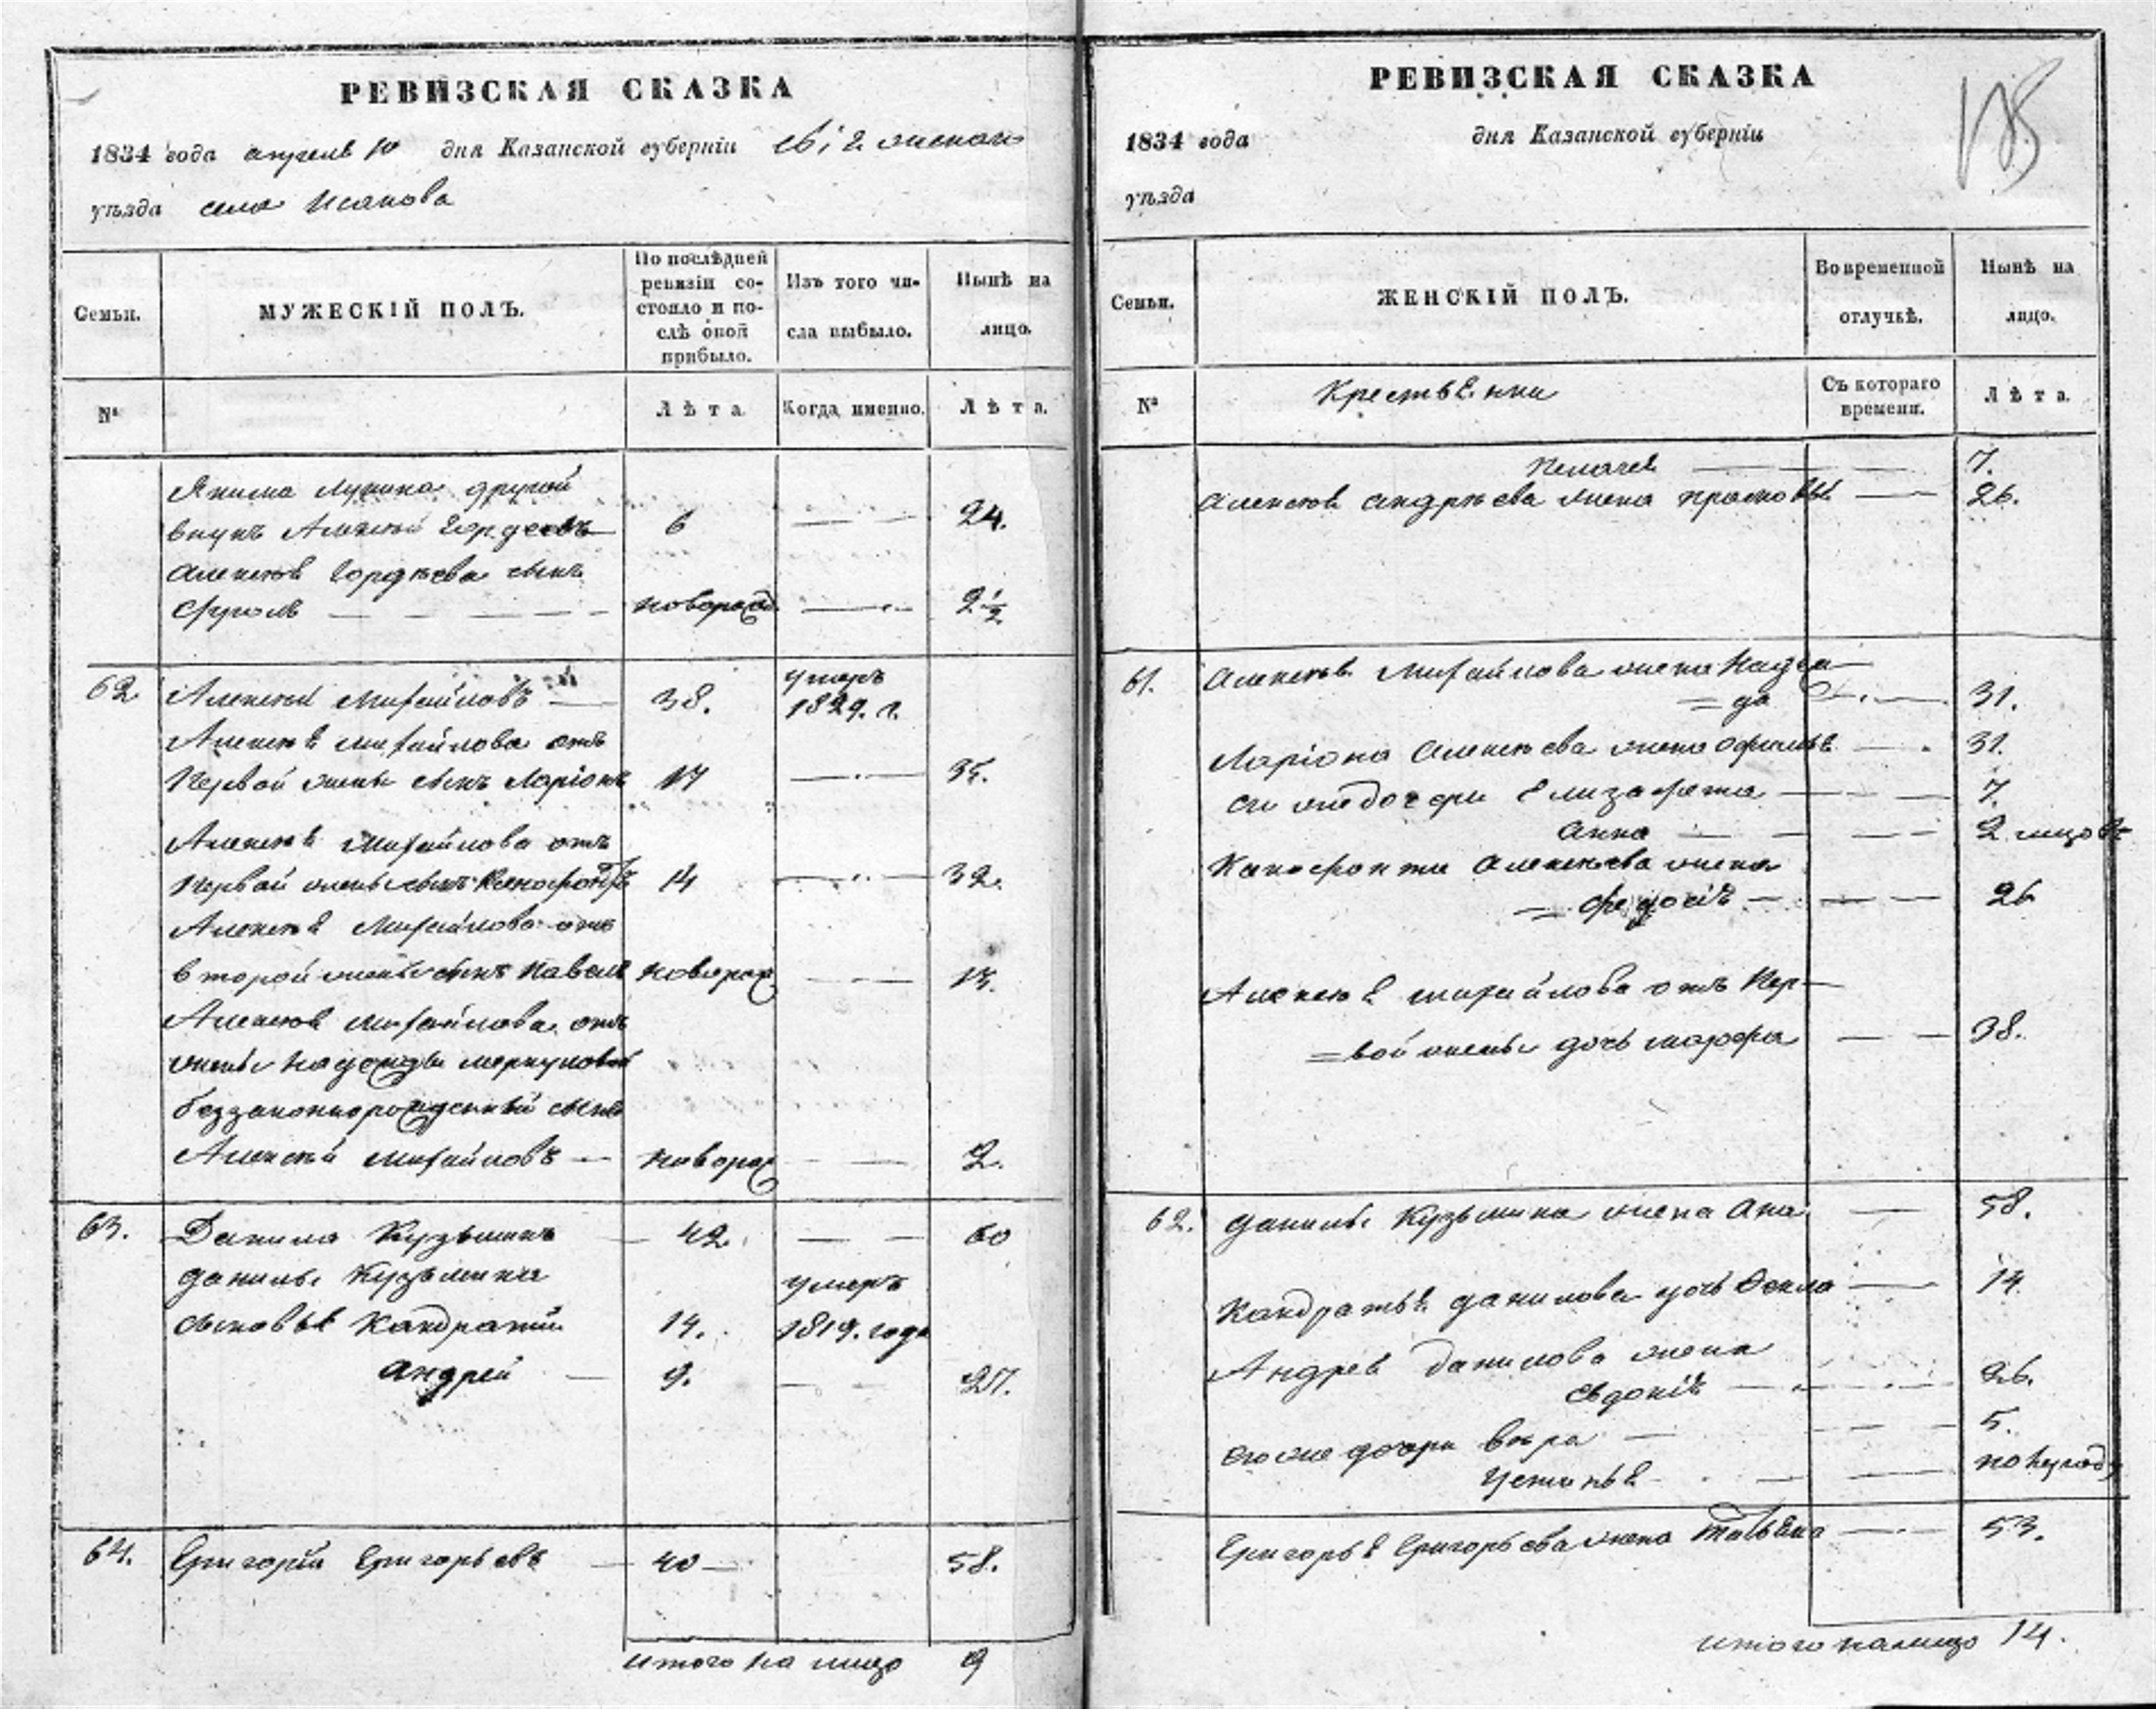 РЕВИЗСКАЯ СКАЗКА
1834 года апреля 10 дня Казанской губерніи
уѣзда села Исакова
Семьи.
МУЖЕСКІЙ ПОЛЪ.
По послѣдней ревизіи состояло и послѣ оной прибыло.
Изъ того числа выбыло.
Нынѣ на лицо.
№
Лѣта
Когда именно.
Лѣта.
Якима Лукина другой
внукъ Алексей Гордеевъ 6 24.
Алексея Гордѣева сынъ
Фролъ новорож 2 1/2
62 Алексей Михайловъ 38. умеръ 1829. г.
Алексея Михайлова отъ
Первой жены сынъ Ларіонъ 17 35.
Алексея Михайлова отъ
Первой жены сынъ Ксенофонтъ 14 32.
Алексея Михайлова отъ
второй жены сынъ Павелъ новорож 13.
Алексея Михайлова отъ
жены Надежды меркуловой
беззаконнорожденный сынъ
Алексей Михайловъ новорож 2.
63. Данила Кузьминъ 42. 60
Данилы Кузьмина
сыновья Кандратий 14. умеръ 1819. года
Андрей 9. 27.
64. Григорій Григорьевъ 40 58.
итого на лицо 9
РЕВИЗСКАЯ СКАЗКА
1834 года дня Казанской губерніи
уѣзда
Семьи.
ЖЕНСКІЙ ПОЛЪ.
Во временной отлучкѣ.
Нынѣ на лицо.
№
Съ котораго времени.
Лѣта.
Пелагея 7.
Алексея Андрѣева жена прасковья 26.
61. Алексея Михайлова жена Надеж
= да 31.
Ларіона Алексѣева жена Офимья 31.
его же дочери Елизафета 7.
Анна 2
Канофонта Алексѣева жена
= Федосія 26
Алексея михайлова отъ Пер
= вой жены дочь марфа 38.
62. Данилы Кузьмина жена Ана 58.
Кандратья данилова дочь Фекла 14
Андрея Данилова жена
Евдокія 26.
его же дочери вѣра 5.
Устинья полугоду
Григорья Григорьева жена Татьяна 53.
итого налицо 14.